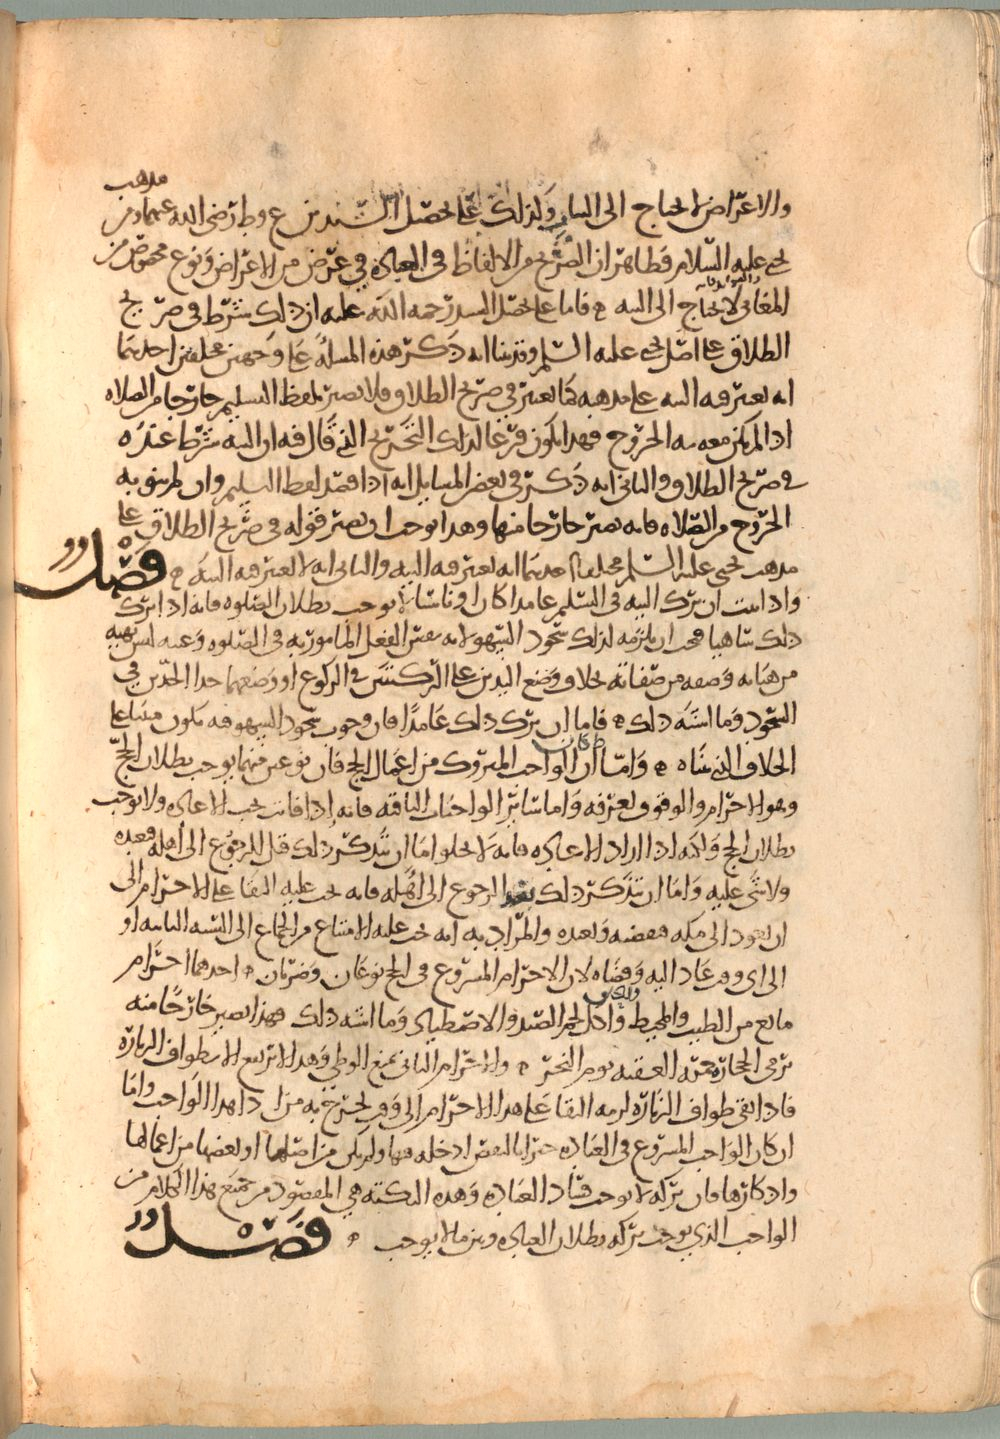 مذهب
والاعراض لا يحتاج الى البيان ولذلك على تحصيل السيدين ع وط رضى الله عنهما ومن
يحيى عليه السلام وظاهر ان الصريح من الالفاظ فى العبادة فى غرض من الاغراض ونوع مخصوص من
المعانى لا يحتاج الى النيه فاما على تحصيل السيد رحمه الله عليه ان ذلك شرط فى صريح
الطلاق على اصل يحيى عليه السلم وقد بينا انه ذكر هذه المسله على وجهين مختلفين احدهما
انه يعتبر فيه النيه على مذهبه كما يعتبر فى صريح الطلاق ولا يصير بلفظ التسليم خارجا من الصلاه
اذا لم يكن معه نيه الخروج فهذا يكون فرعا لذلك التخريج الذى قال فيه ان النيه شرط عنده
فى صريح الطلاق والثانى انه ذكر فى بعض المسايل انه اذا قصد لفظ التسليم وان لم ينو به
الخروج من الصلاه فانه يصير خارجا منها وهذا يوجب ان يصير قوله فى صريح الطلاق على
مذهب يحيى عليه السلم مختلفا احدهما انه يعتبر فيه النيه والثانى انه لا يعتبر فيه النيه فصل
واذا ثبت ان ترك النيه فى التسليم عامدا كان او ناسيا لا يوجب بطلان الصلوه فانه اذا ترك
ذلك ساهيا فيجب ان يلزمه لذلك سجود السهو لانه بعض الفعل المامور به فى الصلوه وعينه ليس بهيه
من هيئاته وصفه من صفاته بخلاف وضع اليدين على الركبتين فى الركوع او وضعهما حذا الخدين فى
السجود وما اشبه ذلك فاما ان ترك ذلك عامدا فان وجوب سجود السهو فيه يكون مبنيا على
الخلاف الذى بيناه واما ان كان الواجب المتروك من اعمال الحج فان نوعين منها يوجب بطلان الحج
وهو الاحرام والوقوف بعرفه واما ساير الواجبات الباقيه فانه اذا فات يجب الاعاده ولا يوجب
بطلان الحج وانه اذا اراد الاعاده فانه لا يخلوا اما ان يتذكر ذلك قبل الرجوع الى اهله فيعيده
ولا شى عليه واما ان يتذكر ذلك بعد الرجوع الى اهله فانه يجب عليه البقا على الاحرام الى
ان يعود الى مكه فيقضيه ويعيده والمراد به انه يجب عليه الامتناع من الجماع الى السنه الثانيه او
الى اى وقت عاد اليه وقضاه لان الاحرام المشروع فى الحج نوعان وضربان احدهما احرام
مانع من الطيب والمخيط واكل لحم الصيد والاصطياد وما اشبه ذلك فهذا يصير خارجا منه
برمى الحجاره جمره العقبه يوم النحر والاحرام الثانى يمنع الوطى وهذا لا يرتفع الا بطواف الزياره
فاذا بقى طواف الزياره لزمه البقا على هذا الاحرام الى وقت يخرج فيه من ادا هذا الواجب واما
ان كان الواجب المشروع فى العباده جبرانا لنقص ادخله فيها ولم يكن من اصلها او بعضها من اعمالها
واذكارها فان تركه لا يوجب فساد العباده وهذه النكته هى المقصود من جميع هذا الكلام من
الواجب الذى يوجب تركه بطلان العباده وبين ما لا يوجب فصل